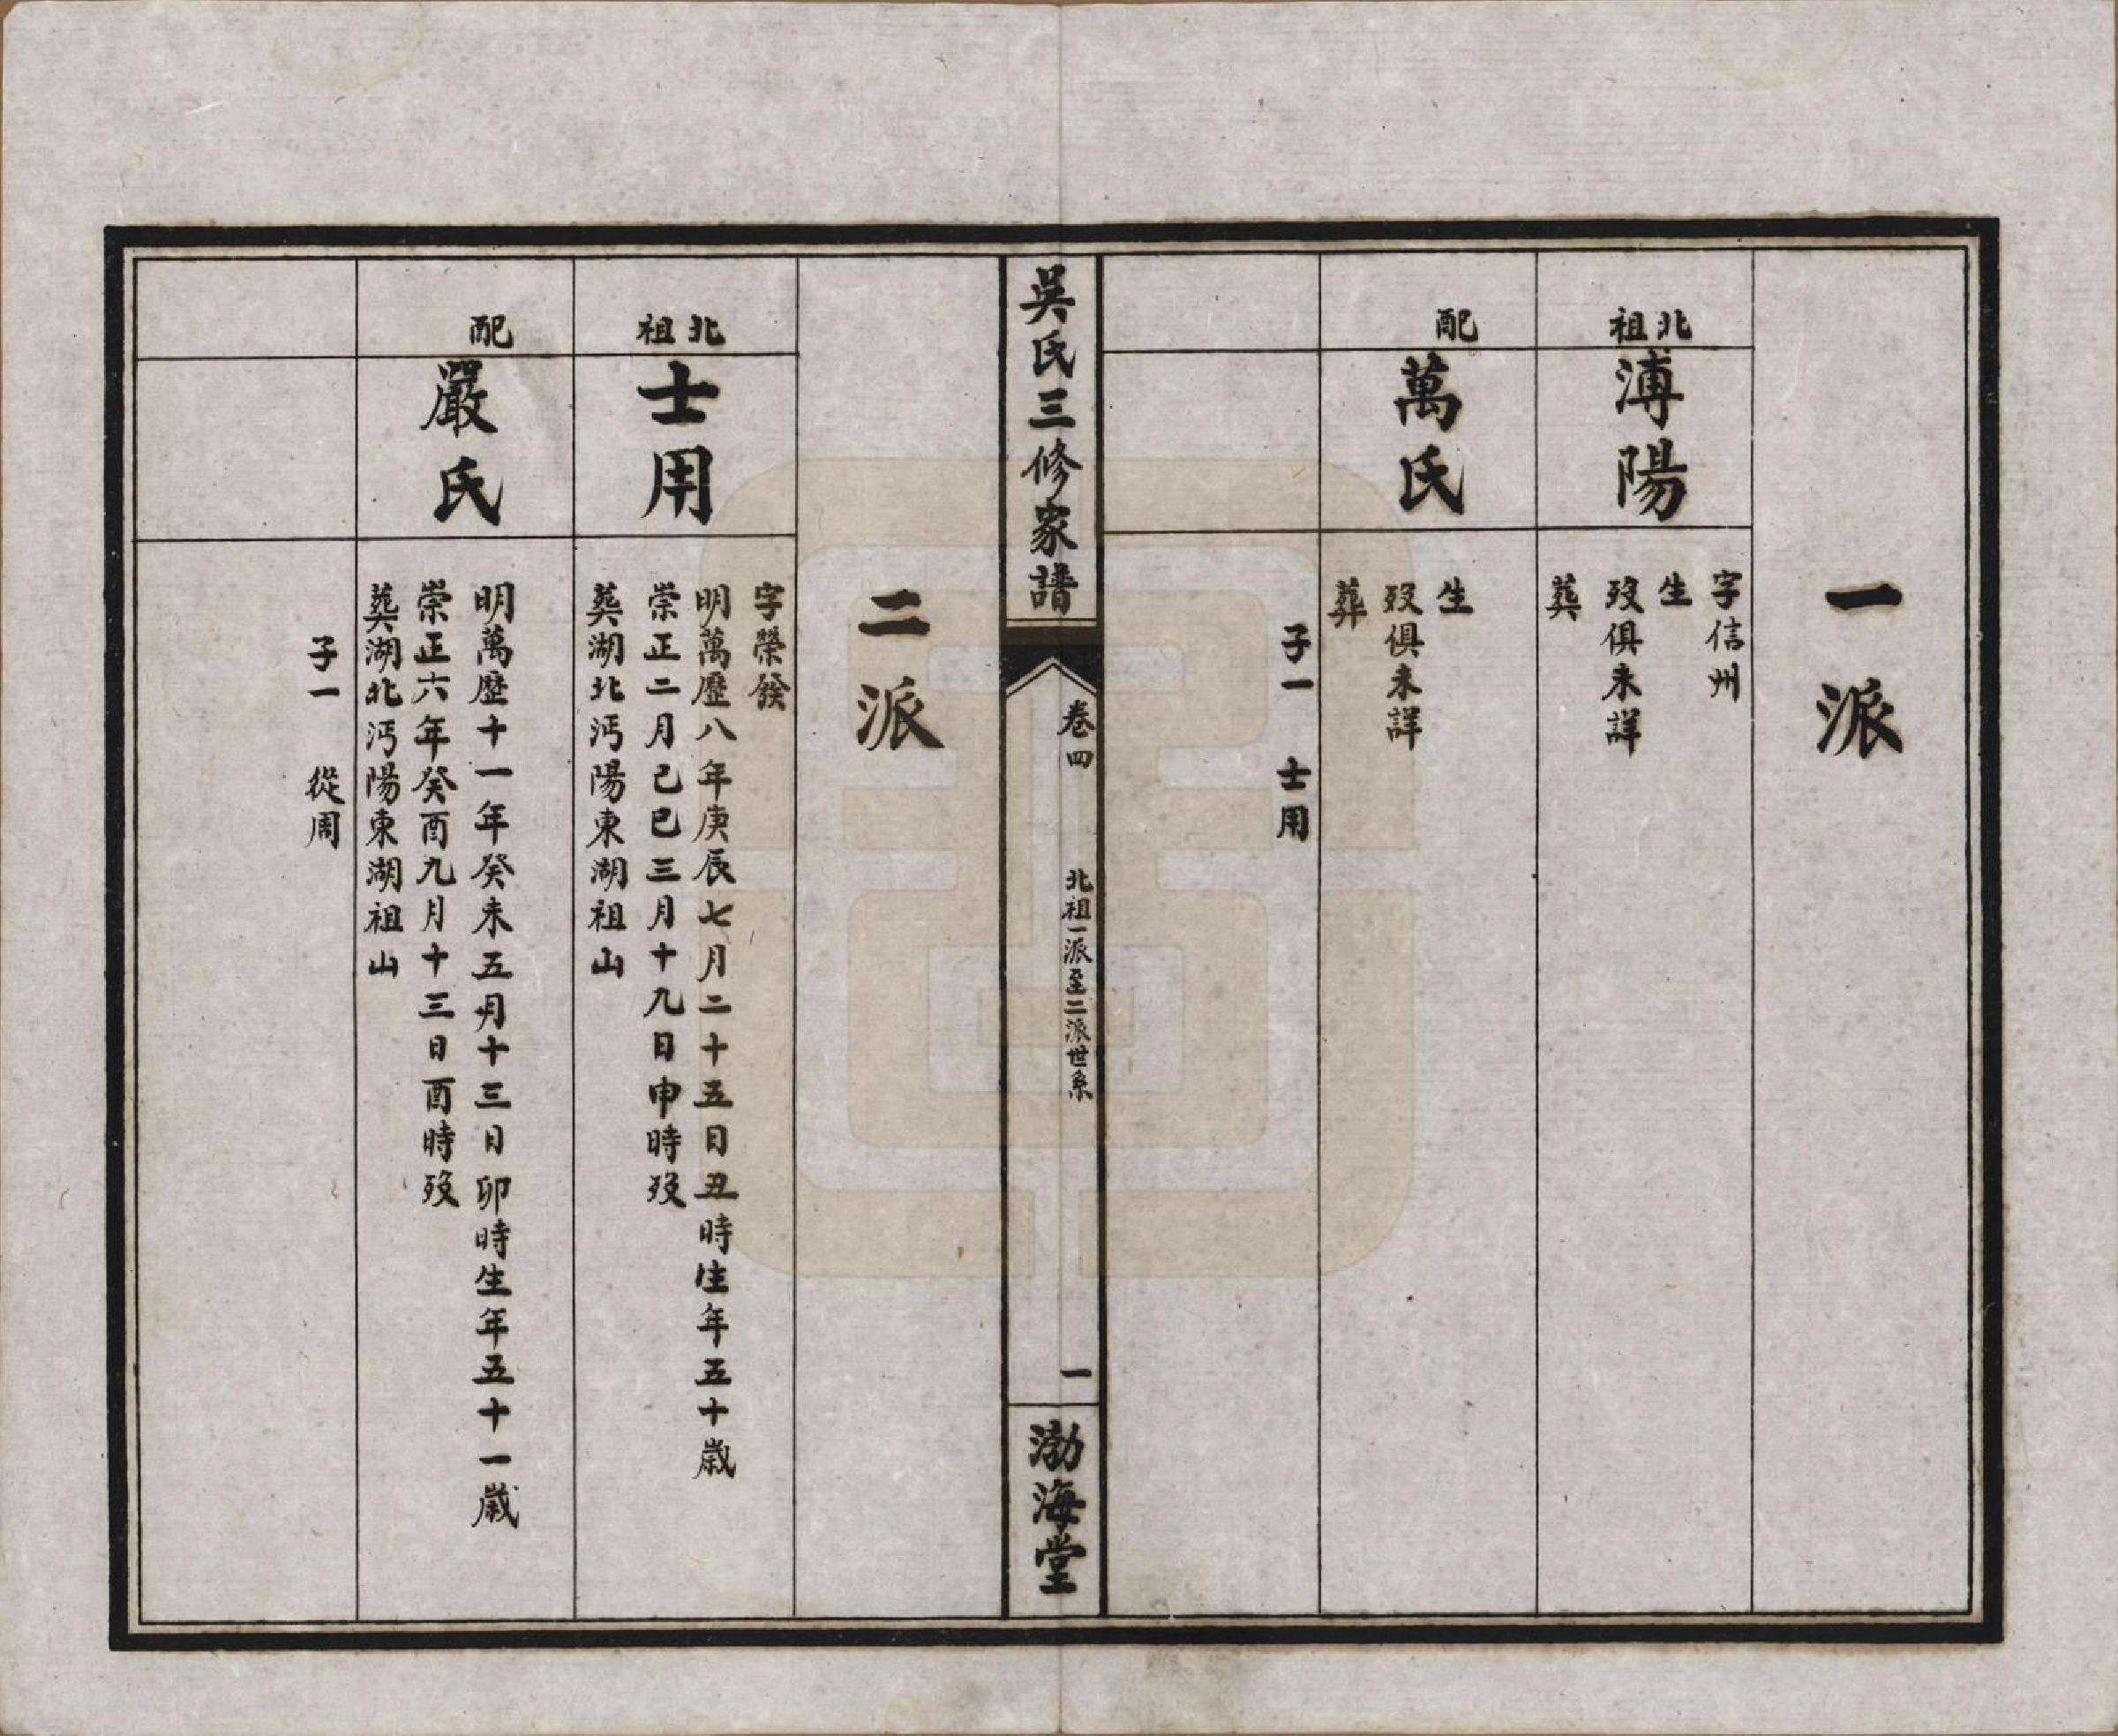 一派
北祖
溥陽
字信州
生
歿俱未詳
葬
配
萬氏
生
歿俱未詳
葬
子一　士用
吳氏三修家譜
卷四
北祖一派至二派世系
一
渤海堂
二派
北祖
士用
字榮發
明萬歷八年庚辰七月二十五日丑時生年五十歲
崇正二月己巳三月十九日申時歿
葬湖北沔陽東湖祖山
配
嚴氏
明萬歷十一年癸未五月十三日卯時生年五十一歲
崇正六年癸酉九月十三日酉時歿
葬湖北沔陽東湖祖山
子一　從周